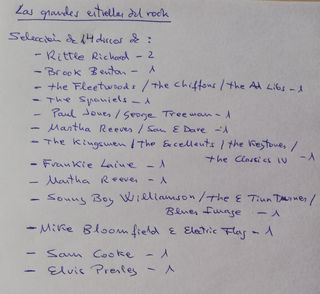 Las grandes estrellas del rock
Selección de 14 discos de :
- Rittle Richard - 2
- Brook Benton - 1
- The Fleetwoods / The Chiffons / The Ad Libs - 1
- The Spaniels - 1
- Paul Jones / George Treeman - 1
- Martha Reeves / Sam E Dave - 1
- The Kingsmen / The Excellents / The Keytones /
The Classics IV - 1
- Frankie Laine - 1
- Martha Reeves - 1
- Sonny Boy Williamson / The E Tina Turner /
Blues Image - 1
- Mike Bloomfield E Electric Flag - 1
- Sam Cooke - 1
- Elvis Presley - 1